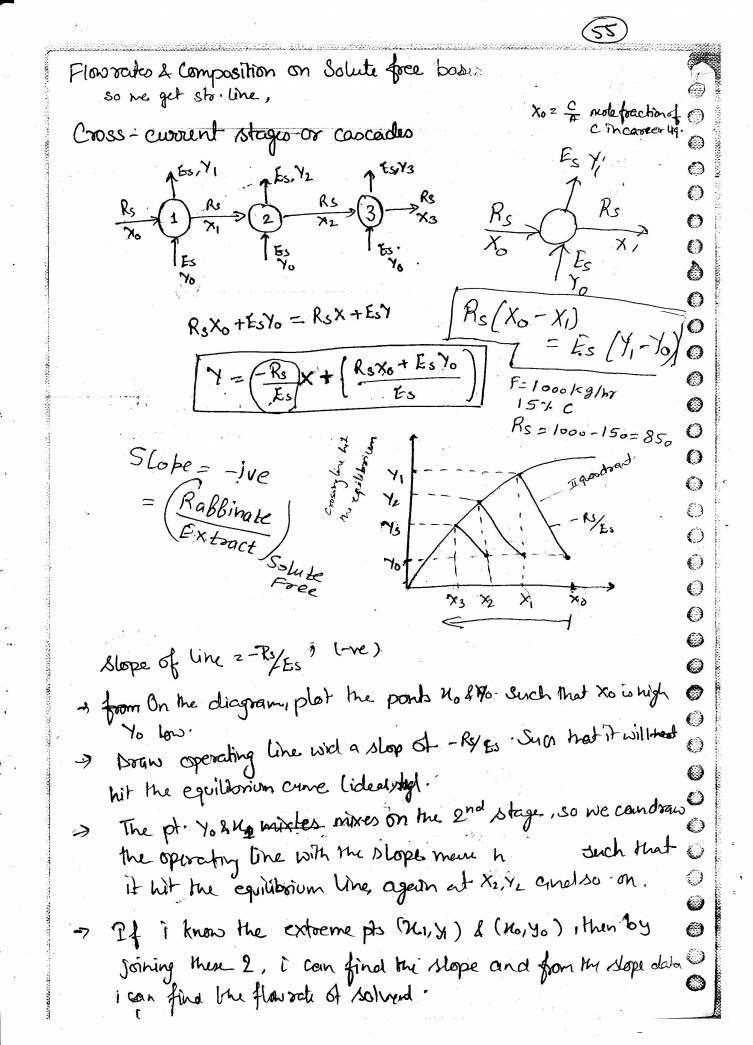 55
Flowrates & Composition on Solute free basis
so we get str. line,
X₀ = C/A mole fraction of
C in career liq.
Cross-current stages or cascades
Es, Y₁
Es, Y₂
Es, Y₃
Rs
X₀
1
Rs
X₁
2
Rs
X₂
3
Rs
X₃
Es
Y₀
Es
Y₀
Es
Y₀
Es Y₁
Rs
X₀
Rs
X₁
Es
Y₀
RsX₀ + EsY₀ = RsX + EsY
Rs(X₀ - X₁)
= Es (Y₁ - Y₀)
Y = (-Rs/Es) X + (RsX₀ + EsY₀ / Es)
F = 1000 kg/hr
15% C
Rs = 1000 - 150 = 850
Slope = -ive
= (Raffinate / Extract) Solute
Free
Crossing line hit
the equilibrium
Y₁
Y₂
Y₃
Y₀
II quadrant
-Rs/Es
X₃ X₂ X₁ X₀
Slope of line = -Rs/Es ; (-ve)
→ from On the diagram, plot the points X₀ & Y₀. Such that X₀ is high
Y₀ low.
→ Draw operating line wid a slop of -Rs/Es. Such that it will
hit the equilibrium curve
→ The pt. Y₀ & mixtes mixes on the 2nd stage, so we can draw
the operating line with the slope such that
it hit the equilibrium line, again at X₂, Y₂ and so on.
→ If i know the extreme pts (X₁, Y₁) & (X₀, Y₀), then by
joining these 2, i can find the slope and from the slope data
i can find the flow rate of solvent.